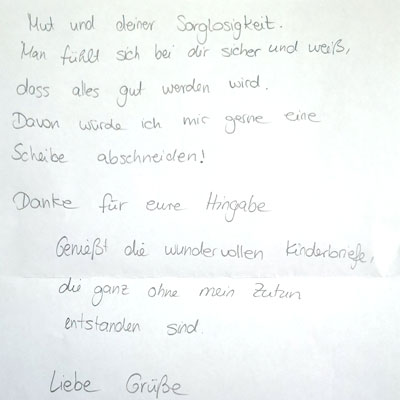 Mut und deiner Sorglosigkeit.
Man fühlt sich bei dir sicher und weiß,
dass alles gut werden wird.
Davon würde ich mir gerne eine
Scheibe abschneiden!
Danke für eure Hingabe
Genießt die wundervollen Kinderbriefe,
die ganz ohne mein Zutun
entstanden sind.
Liebe Grüße